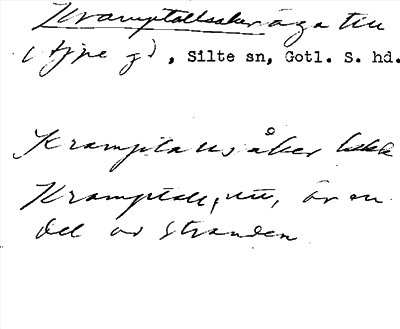 Kramptallsåker äga till
( type gd, Silte sn, Gotl. S. hd.
Kramptallsåker
Kramptall, utt, är en
del av stranden